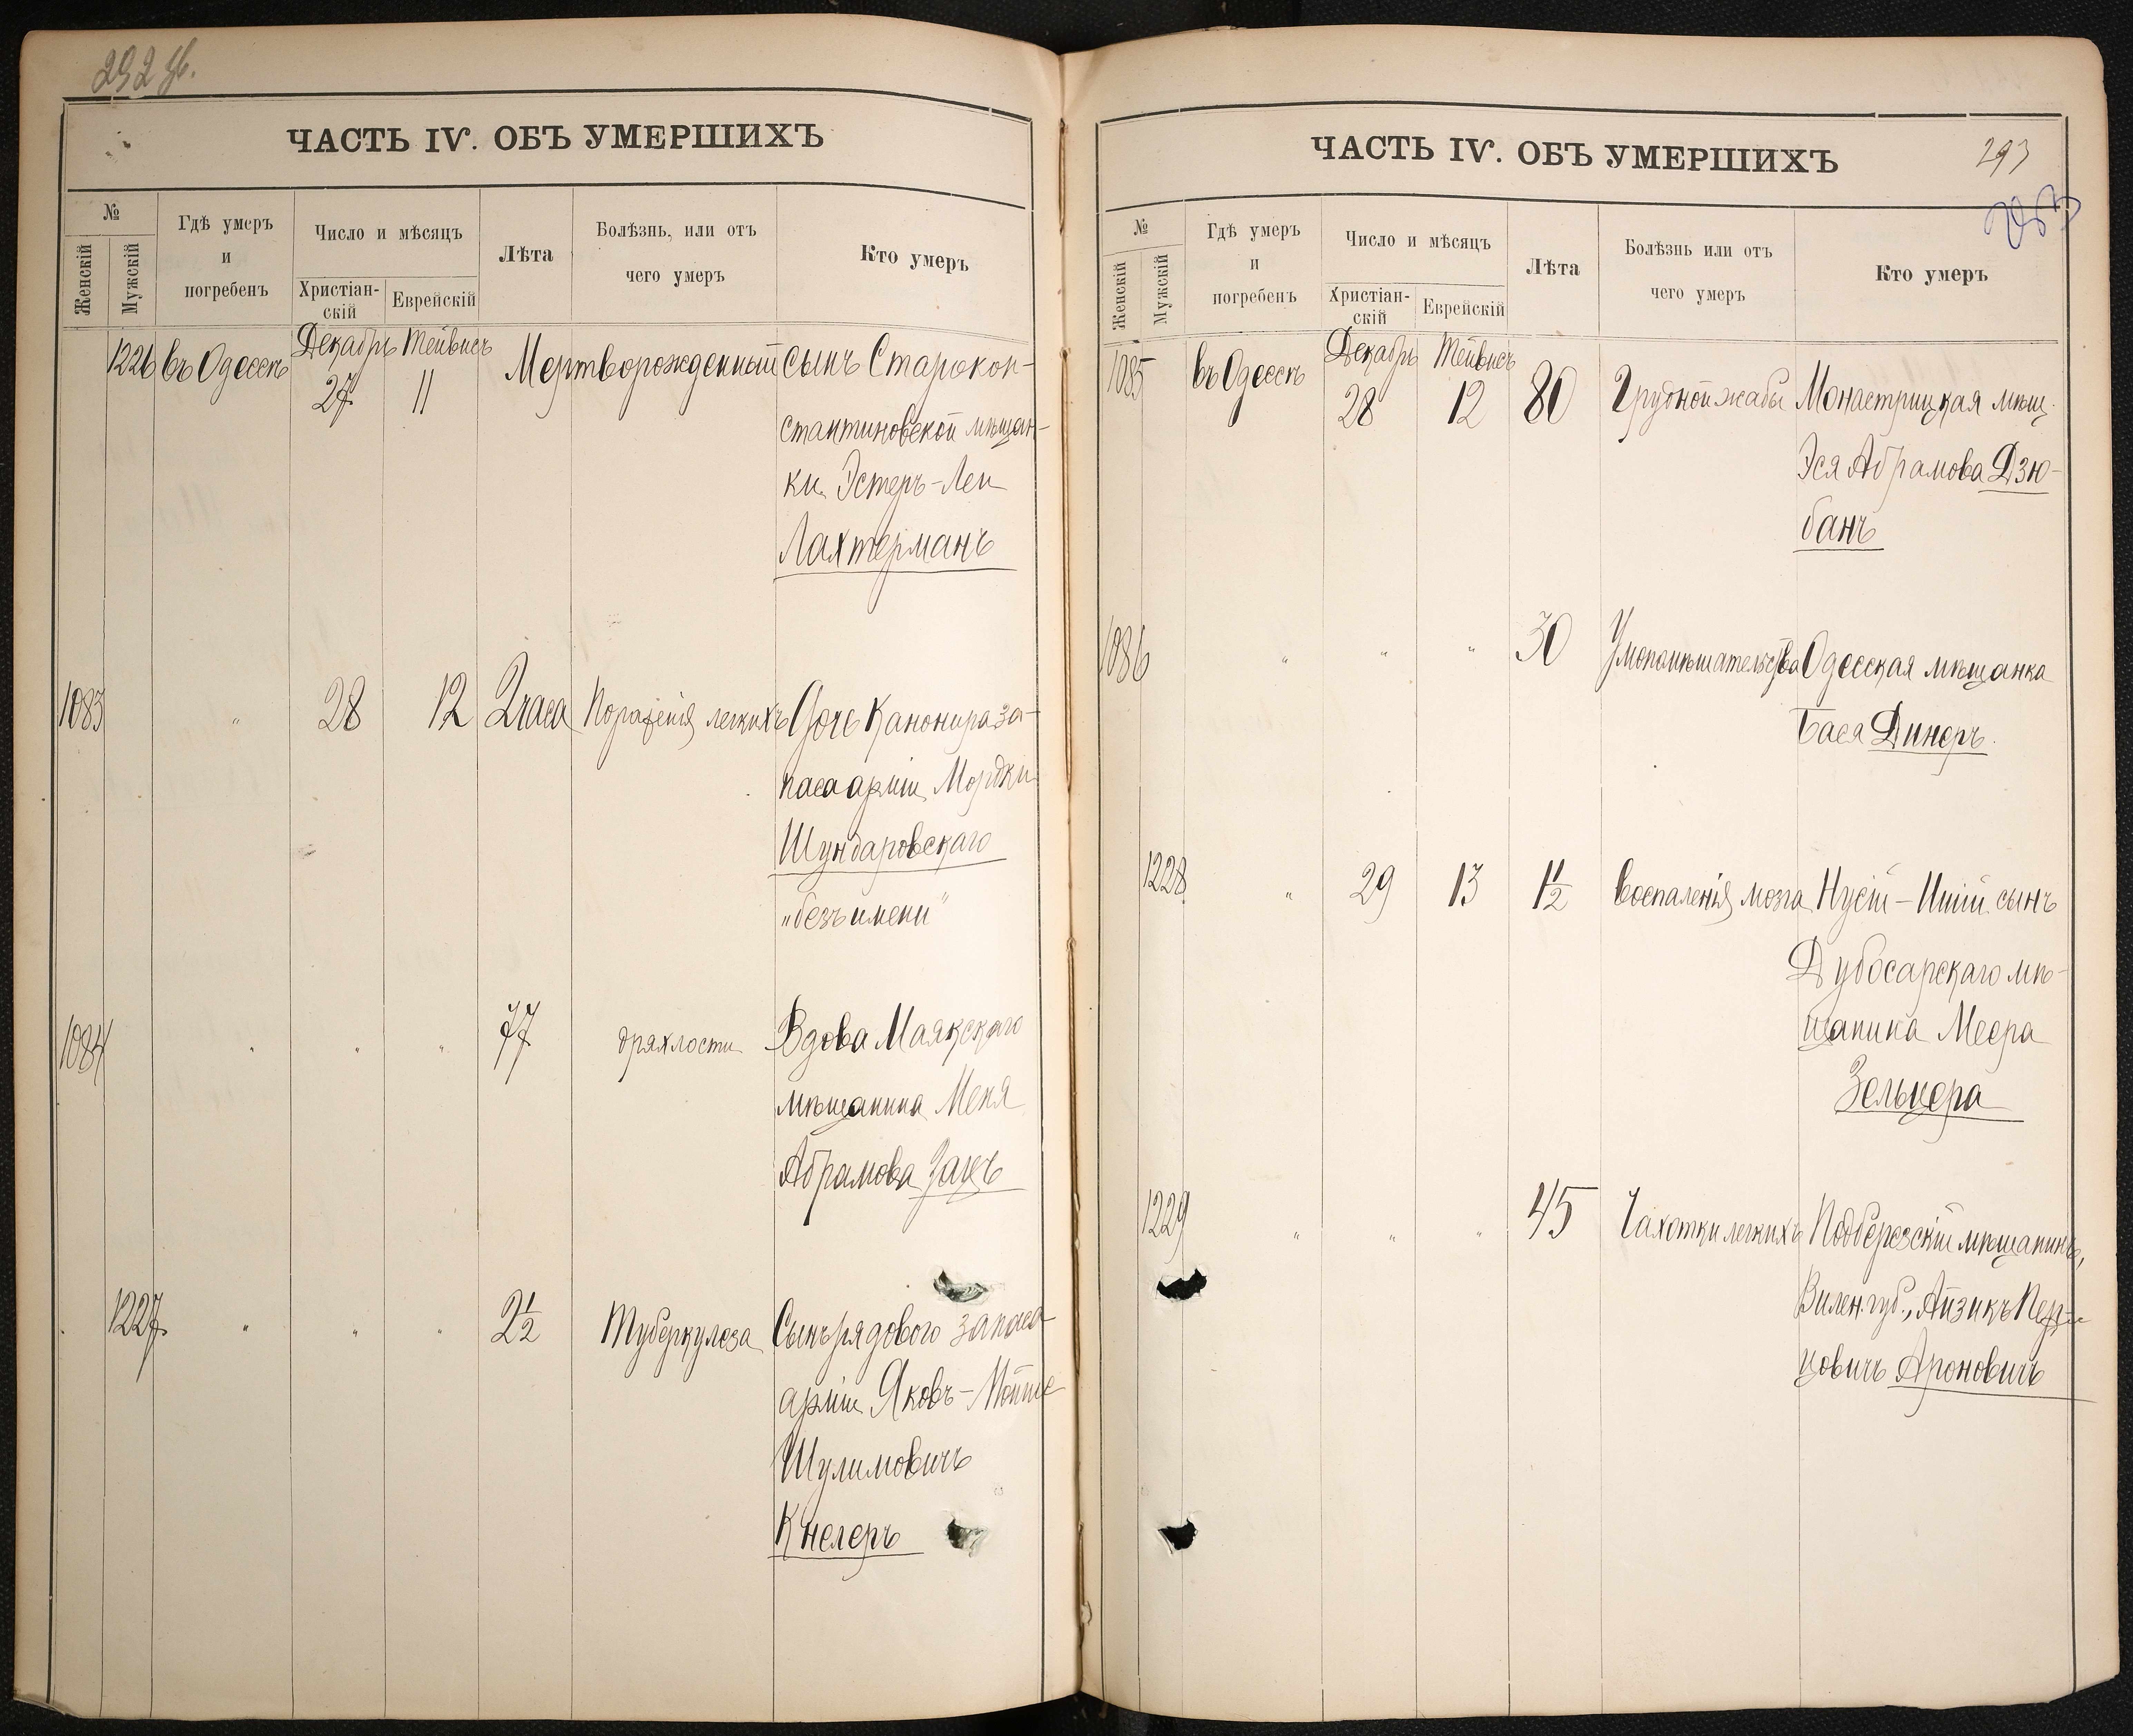 292 об.
ЧАСТЬ IV. ОБЪ УМЕРШИХЪ
№
Женскій
Мужскій
Гдѣ умеръ
и
погребенъ
Число и мѣсяцъ
Христіан-
скій
Еврейскій
Лѣта
Болѣзнь, или отъ
чего умеръ
Кто умеръ
1226 въ Одессѣ Декабрь Тейвисъ Мертворожденный сынъ Старокон-
27 11
стантиновской мѣщан-
ки Эстеръ-Леи
Лахтерманъ
1083 " 28 12 2 часа Пораженія легкихъ Дочь Канонира за-
паса арміи Мордки
Шундаровскаго
"безъ имени"
1084 " " " 77 дряхлости Вдова Маякскаго
мѣщанина Меня
Абрамова Зацъ
1227 " " " 2 1/2 Туберкулеза Сынъ рядового запаса
арміи Яковъ-Мойше
Шулимовичъ
Кнелеръ
ЧАСТЬ IV. ОБЪ УМЕРШИХЪ
293
№
Женскій
Мужскій
Гдѣ умеръ
и
погребенъ
Число и мѣсяцъ
Христіан-
скій
Еврейскій
Лѣта
Болѣзнь или отъ
чего умеръ
Кто умеръ
1085 въ Одессѣ Декабрь Тейвисъ
28 12 80 Грудной жабы Монастрицкая мѣщ.
Эся Абрамова Дзю-
банъ
1086 " " " 30 Умопомѣшательства Одесская мѣщанка
Бася Динеръ.
1228 " 29 13 1 1/2 Воспаленія мозга сынъ
Дубосарскаго мѣ-
щанина Меера
Зельцера
1229 " " " 45 Чахотки легкихъ Подберезскій мѣщанинъ,
Вилен. губ., Айзикъ Пер-
цовичъ Ароновичъ